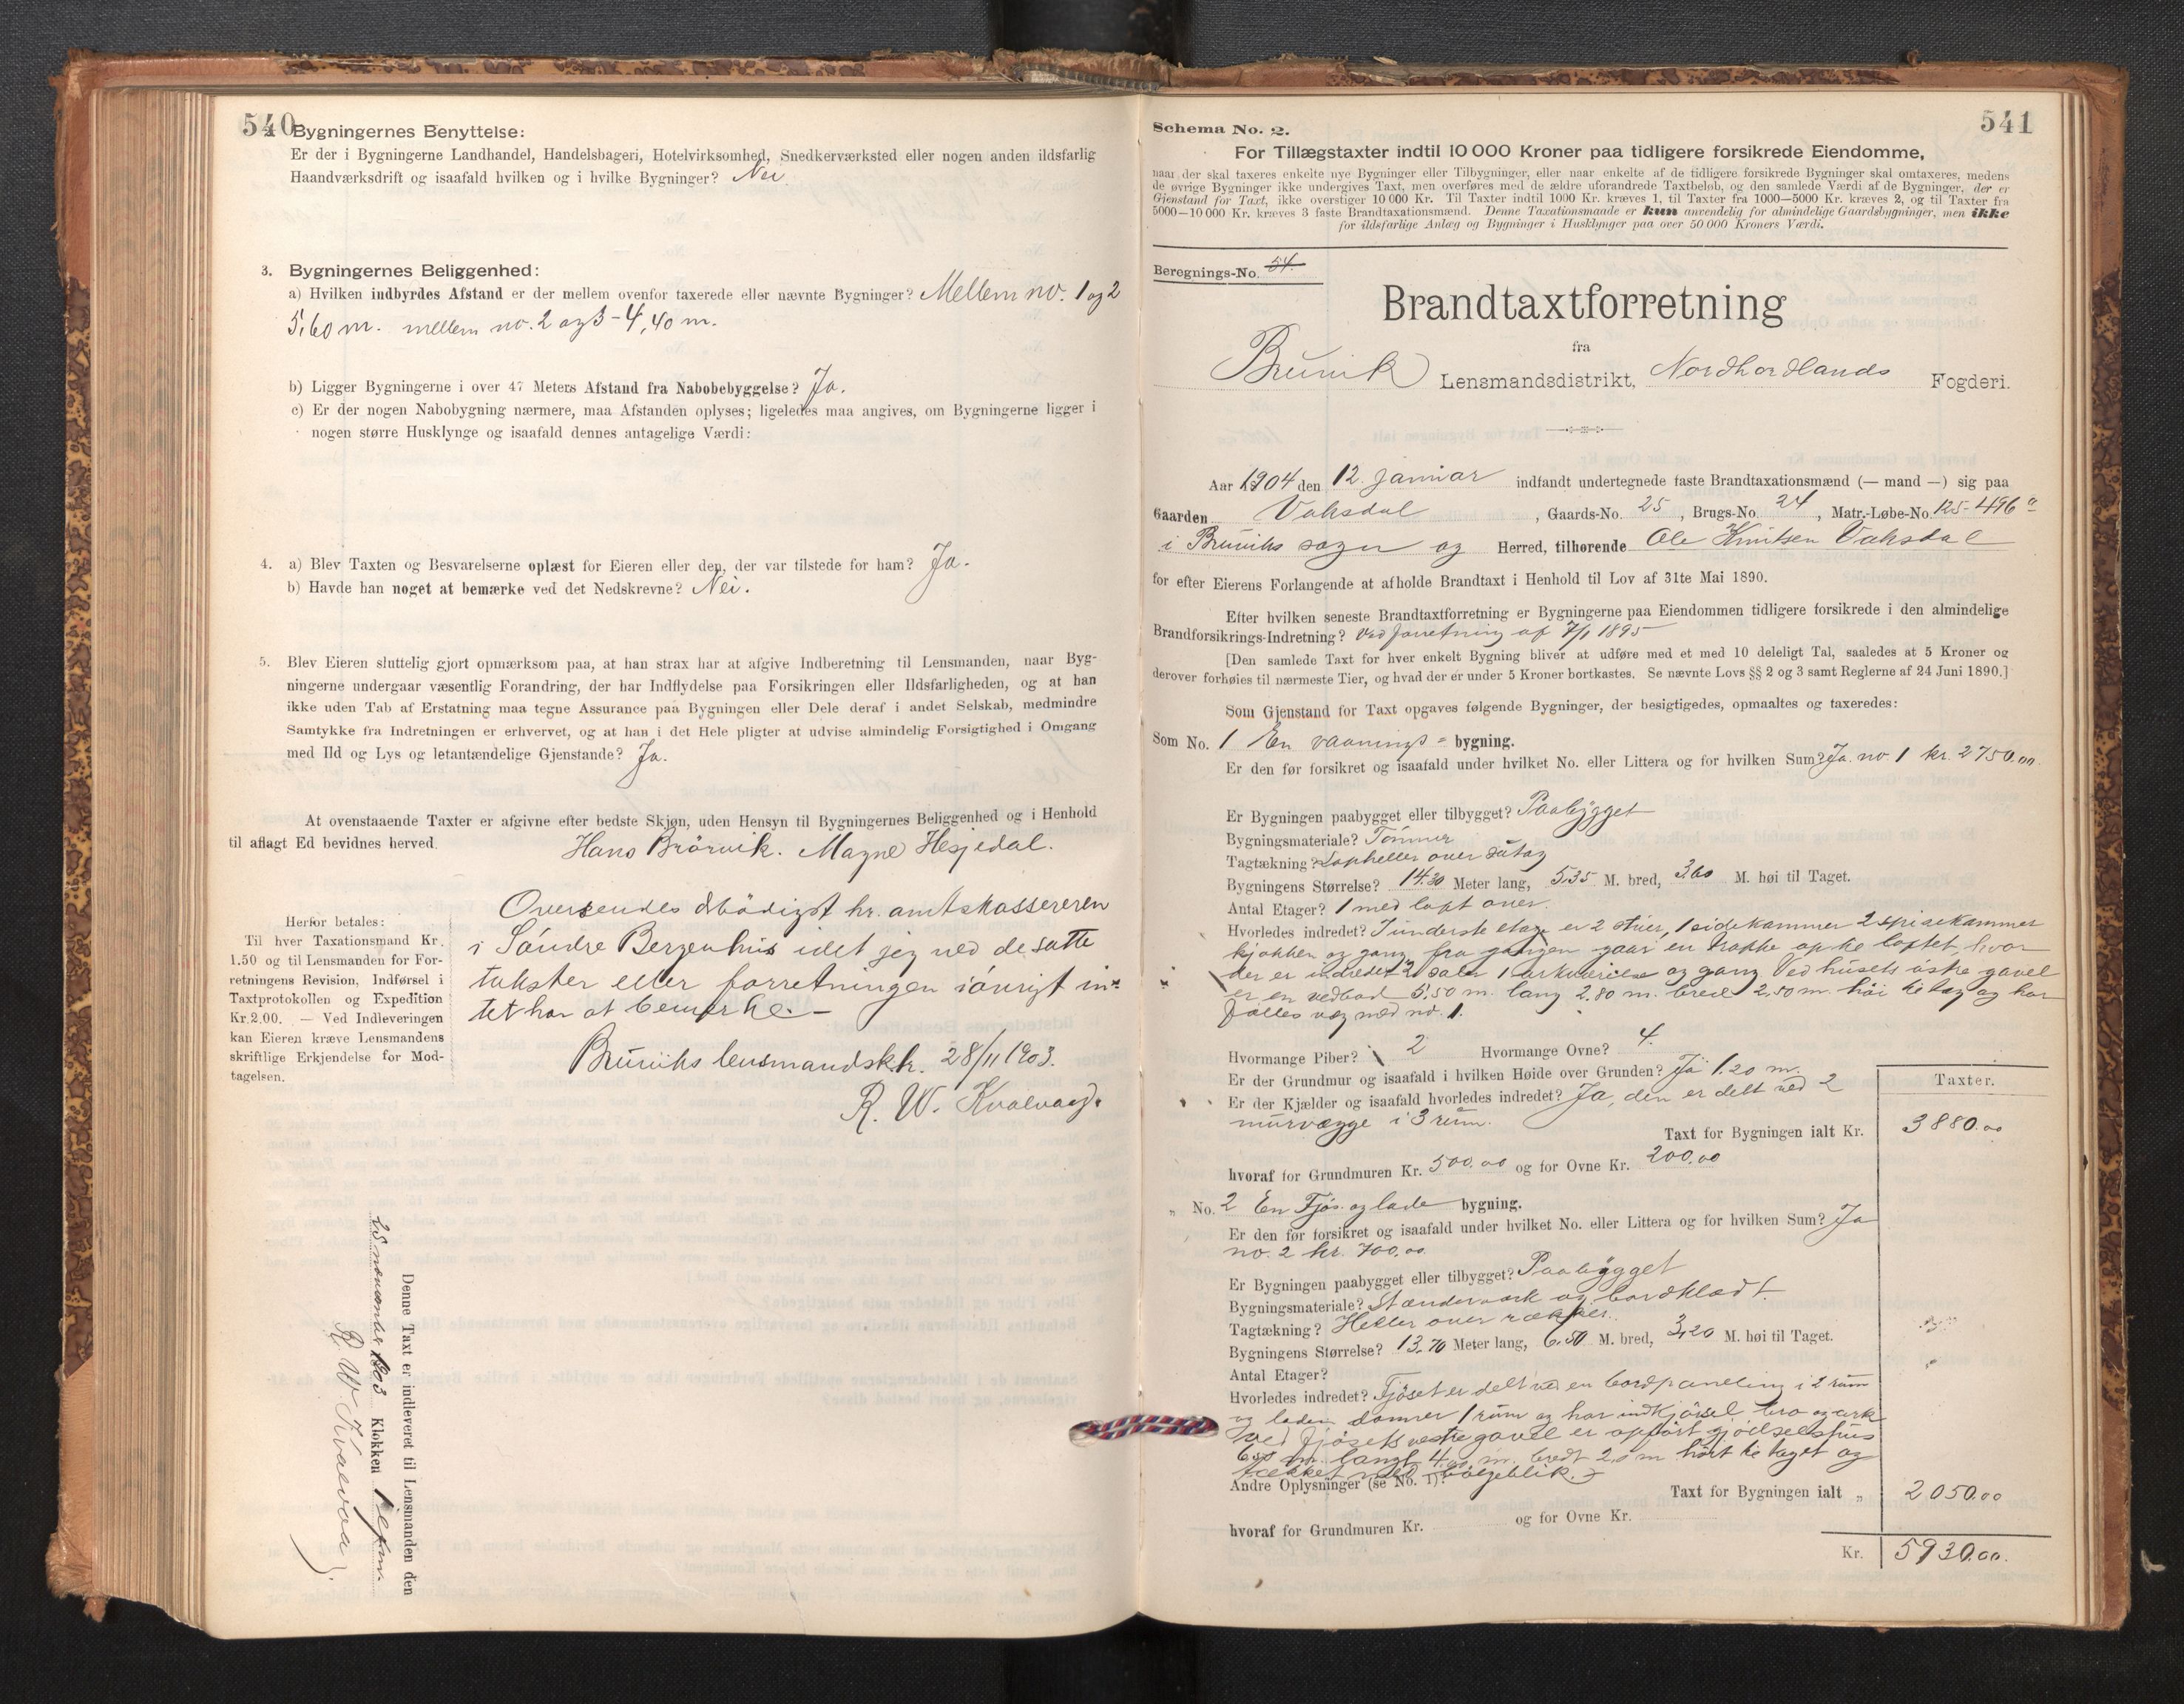 540
2. Bygningernes Benyttelse:
Er der i Bygningerne Landhandel, Handelsbageri, Hotelvirksomhed, Snedkerværksted eller nogen anden ildsfarlig
Haandværksdrift og isaafald hvilken og i hvilke Bygninger? Nei
3. Bygningernes Beliggenhed:
a) Hvilken indbyrdes Afstand er der mellem ovenfor taxerede eller nævnte Bygninger? Mellem no. 1 og 2
5,60 m. mellem no. 2 og 3 - 4,40 m.
b) Ligger Bygningerne i over 47 Meters Afstand fra Nabobebyggelse? Ja.
c) Er der nogen Nabobygning nærmere, maa Afstanden oplyses; ligeledes maa angives, om Bygningerne ligger i
nogen større Husklynge og isaafald dennes antagelige Værdi:
4. a) Blev Taxten og Besvarelserne oplæst for Eieren eller den, der var tilstede for ham? Ja.
b) Havde han noget at bemærke ved det Nedskrevne? Nei.
5. Blev Eieren sluttelig gjort opmærksom paa, at han strax har at afgive Indberetning til Lensmanden, naar Byg-
ningerne undergaar væsentlig Forandring, der har Indflydelse paa Forsikringen eller Ildsfarligheden, og at han
ikke uden Tab af Erstatning maa tegne Assurance paa Bygningen eller Dele deraf i andet Selskab, medmindre
Samtykke fra Indretningen er erhvervet, og at han i det Hele pligter at udvise almindelig Forsigtighed i Omgang
med Ild og Lys og letantændelige Gjenstande? Ja.
At ovenstaaende Taxter er afgivne efter bedste Skjøn, uden Hensyn til Bygningernes Beliggenhed og i Henhold
til aflagt Ed bevidnes herved.
Hans Brörvik. Magne Hesjedal.
Herfor betales:
Til hver Taxationsmand Kr.
1.50 og til Lensmanden for For-
retningens Revision, Indførsel i
Taxtprotokollen og Expedition
Kr. 2.00. — Ved Indleveringen
kan Eieren kræve Lensmandens
skriftlige Erkjendelse for Mod-
tagelsen.
Oversendes ærbödigst hr. amtskassereren
i Söndre Bergenhus idet jeg ved de satte
takster eller forretningen iövrigt in-
tet har at bemerke. -
Bruviks lensmandsk.h. 28/11 1903.
R. W. Kvalvaag.
Denne Taxt er indleveret til Lensmanden den
28 november 1903 Klokken
R. W. Kvalvaag
541
Schema No. 2.
For Tillægstaxter indtil 10 000 Kroner paa tidligere forsikrede Eiendomme,
naar der skal taxeres enkelte nye Bygninger eller Tilbygninger, eller naar enkelte af de tidligere forsikrede Bygninger skal omtaxeres, medens
de øvrige Bygninger ikke undergives Taxt, men overføres med de ældre uforandrede Taxtbeløb, og den samlede Værdi af de Bygninger, der er
Gjenstand for Taxt, ikke overstiger 10 000 Kr. Til Taxter indtil 1000 Kr. kræves 1, til Taxter fra 1000—5000 Kr. kræves 2, og til Taxter fra
5000—10 000 Kr. kræves 3 faste Brandtaxationsmænd. Denne Taxationsmaade er kun anvendelig for almindelige Gaardsbygninger, men ikke
for ildsfarlige Anlæg og Bygninger i Husklynger paa over 50 000 Kroners Værdi.
Beregnings-No. 54.
Brandtaxtforretning
fra
Bruvik Lensmandsdistrikt, Nordhordlands Fogderi.
Aar 1904 den 12. januar indfandt undertegnede faste Brandtaxationsmænd (— mand —) sig paa
Gaarden Vaksdal, Gaards-No. 25, Brugs-No. 24, Matr.-Løbe-No. 125-496 a
i Bruviks sogn og Herred, tilhørende Ole Knutsen Vaksdal
for efter Eierens Forlangende at afholde Brandtaxt i Henhold til Lov af 31te Mai 1890.
Efter hvilken seneste Brandtaxtforretning er Bygningerne paa Eiendommen tidligere forsikrede i den almindelige
Brandforsikrings-Indretning? Ved forretning af 7/1 1895
[Den samlede Taxt for hver enkelt Bygning bliver at udføre med et med 10 deleligt Tal, saaledes at 5 Kroner og
derover forhøies til nærmeste Tier, og hvad der er under 5 Kroner bortkastes. Se nævnte Lovs §§ 2 og 3 samt Reglerne af 24 Juni 1890.]
Som Gjenstand for Taxt opgaves følgende Bygninger, der besigtigedes, opmaaltes og taxeredes:
Som No. 1 En vaanings- bygning.
Er den før forsikret og isaafald under hvilket No. eller Littera og for hvilken Sum? Ja no 1 kr. 2750.00
Er Bygningen paabygget eller tilbygget? Paabygget
Bygningsmateriale? Tömmer
Tagtækning? over sutag
Bygningens Størrelse? 14.30 Meter lang, 5,35 M. bred, 3,60 M. høi til Taget.
Antal Etager? 1 med loft over.
Hvorledes indredet? I underste etage er 2 stuer, 1 sidekammer 2 spisekammer
kjøkken og gang fra gangen gaar en trappe op til loftet, hvor
der er indredet 2 saler 1 arkværelse og gang Ved husets östre gavel
er en vedbod 5.50 m. lang 2.80 m. bred 2,50 m. höi til tag og har
fælles væg med no. 1.
Hvormange Piber? 2 Hvormange Ovne? 4.
Er der Grundmur og isaafald i hvilken Høide over Grunden? Ja 1.20 m.
Er der Kjælder og isaafald hvorledes indredet? Ja, den er delt ved 2
murvægge i 3 rum.
Taxter.
Taxt for Bygningen ialt Kr. 3880.00
hvoraf for Grundmuren Kr. 500.00 og for Ovne Kr. 200.00
„ No. 2 En Fjös og lade bygning.
Er den før forsikret og isaafald under hvilket No. eller Littera og for hvilken Sum? Ja
no. 2 kr. 700.00
Er Bygningen paabygget eller tilbygget? Paabygget
Bygningsmateriale? Stænderverk og bordklædt.
Tagtækning? Heller over rækker.
Bygningens Størrelse? 13.70 Meter lang, 6.50 M. bred, 3,20 M. høi til Taget.
Antal Etager?
Hvorledes indredet? Fjöset er delt ved en bordpaneling i 2 rum
og laden danner 1 rum og har indkjörsel bro og ark
Ved fjösets vestre gavel er opfört gjödselshus
m. langt 4.00 m. bredt m. höit til taget og
tækket med bölgeblik.
Andre Oplysninger (se No. 1)?
Taxt for Bygningen ialt „ 2050.00
hvoraf for Grundmuren Kr. og for Ovne Kr.
Kr. 5930.00.